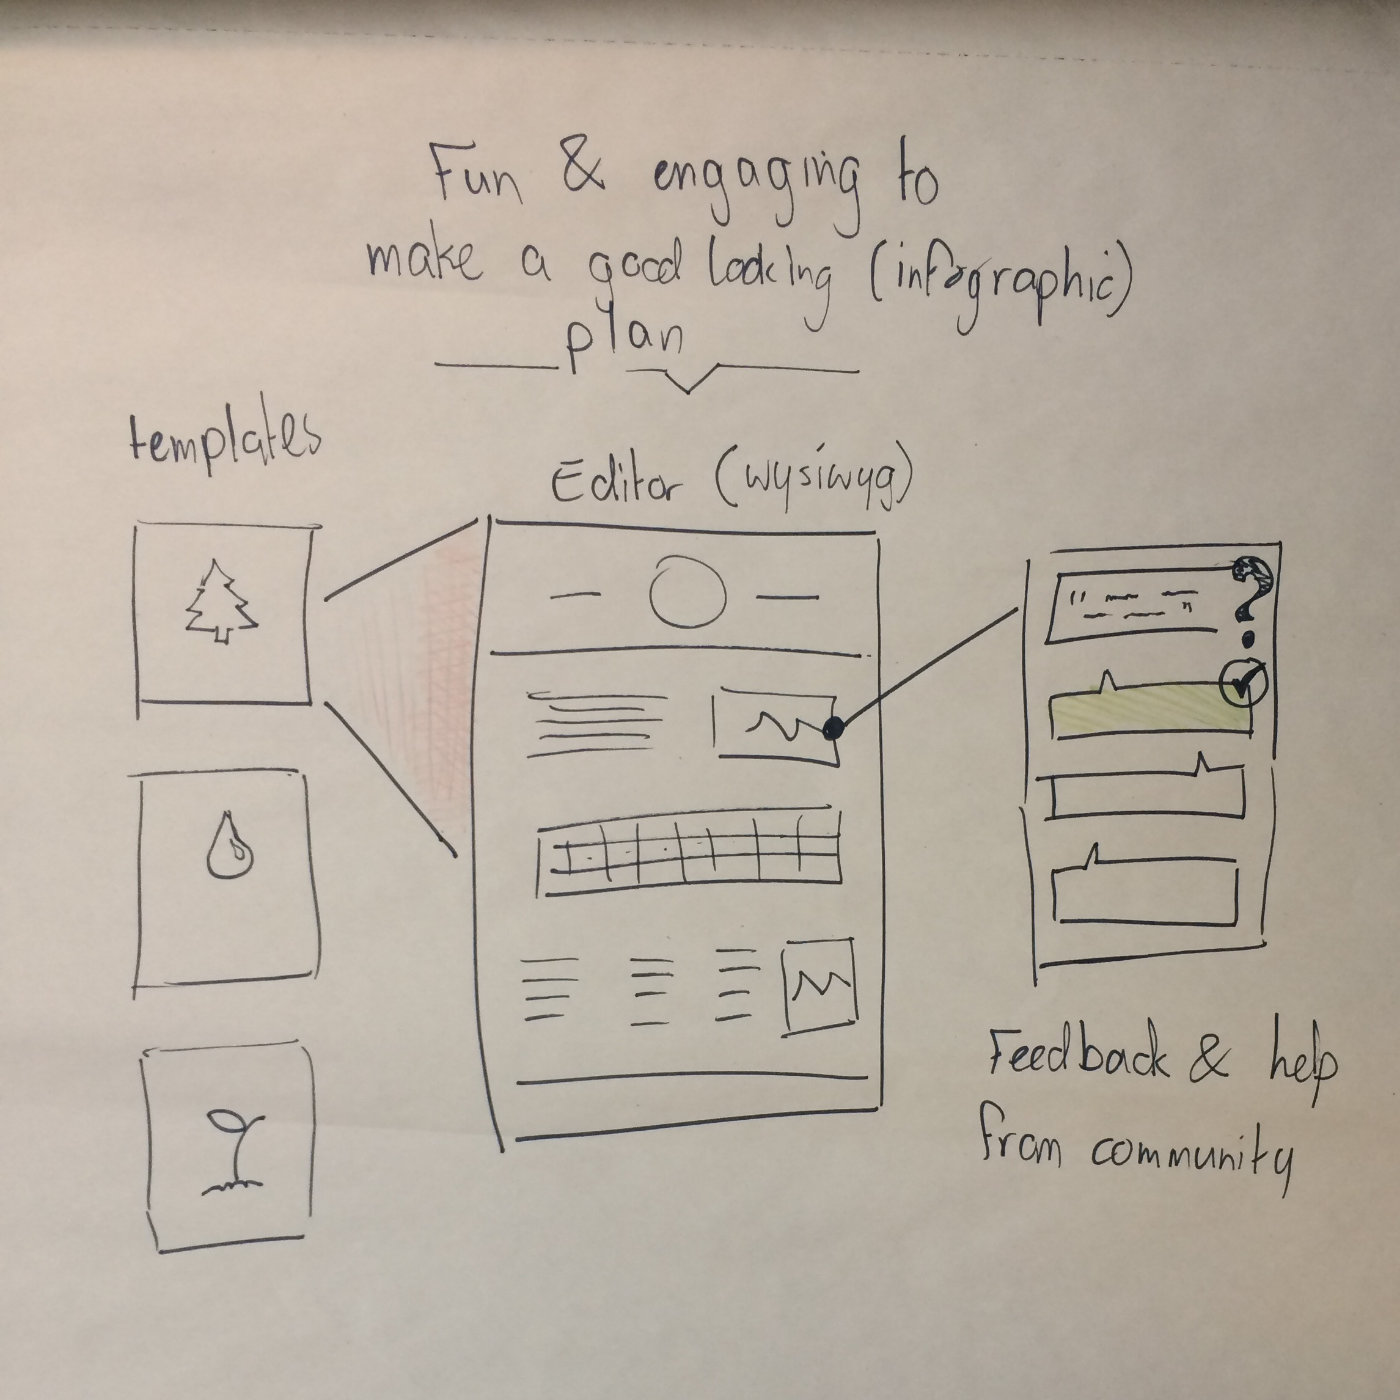 Fun & engaging to
make a good looking (infographic)
plan
templates
Editor (wysiwyg)
?
Feedback & help
from community